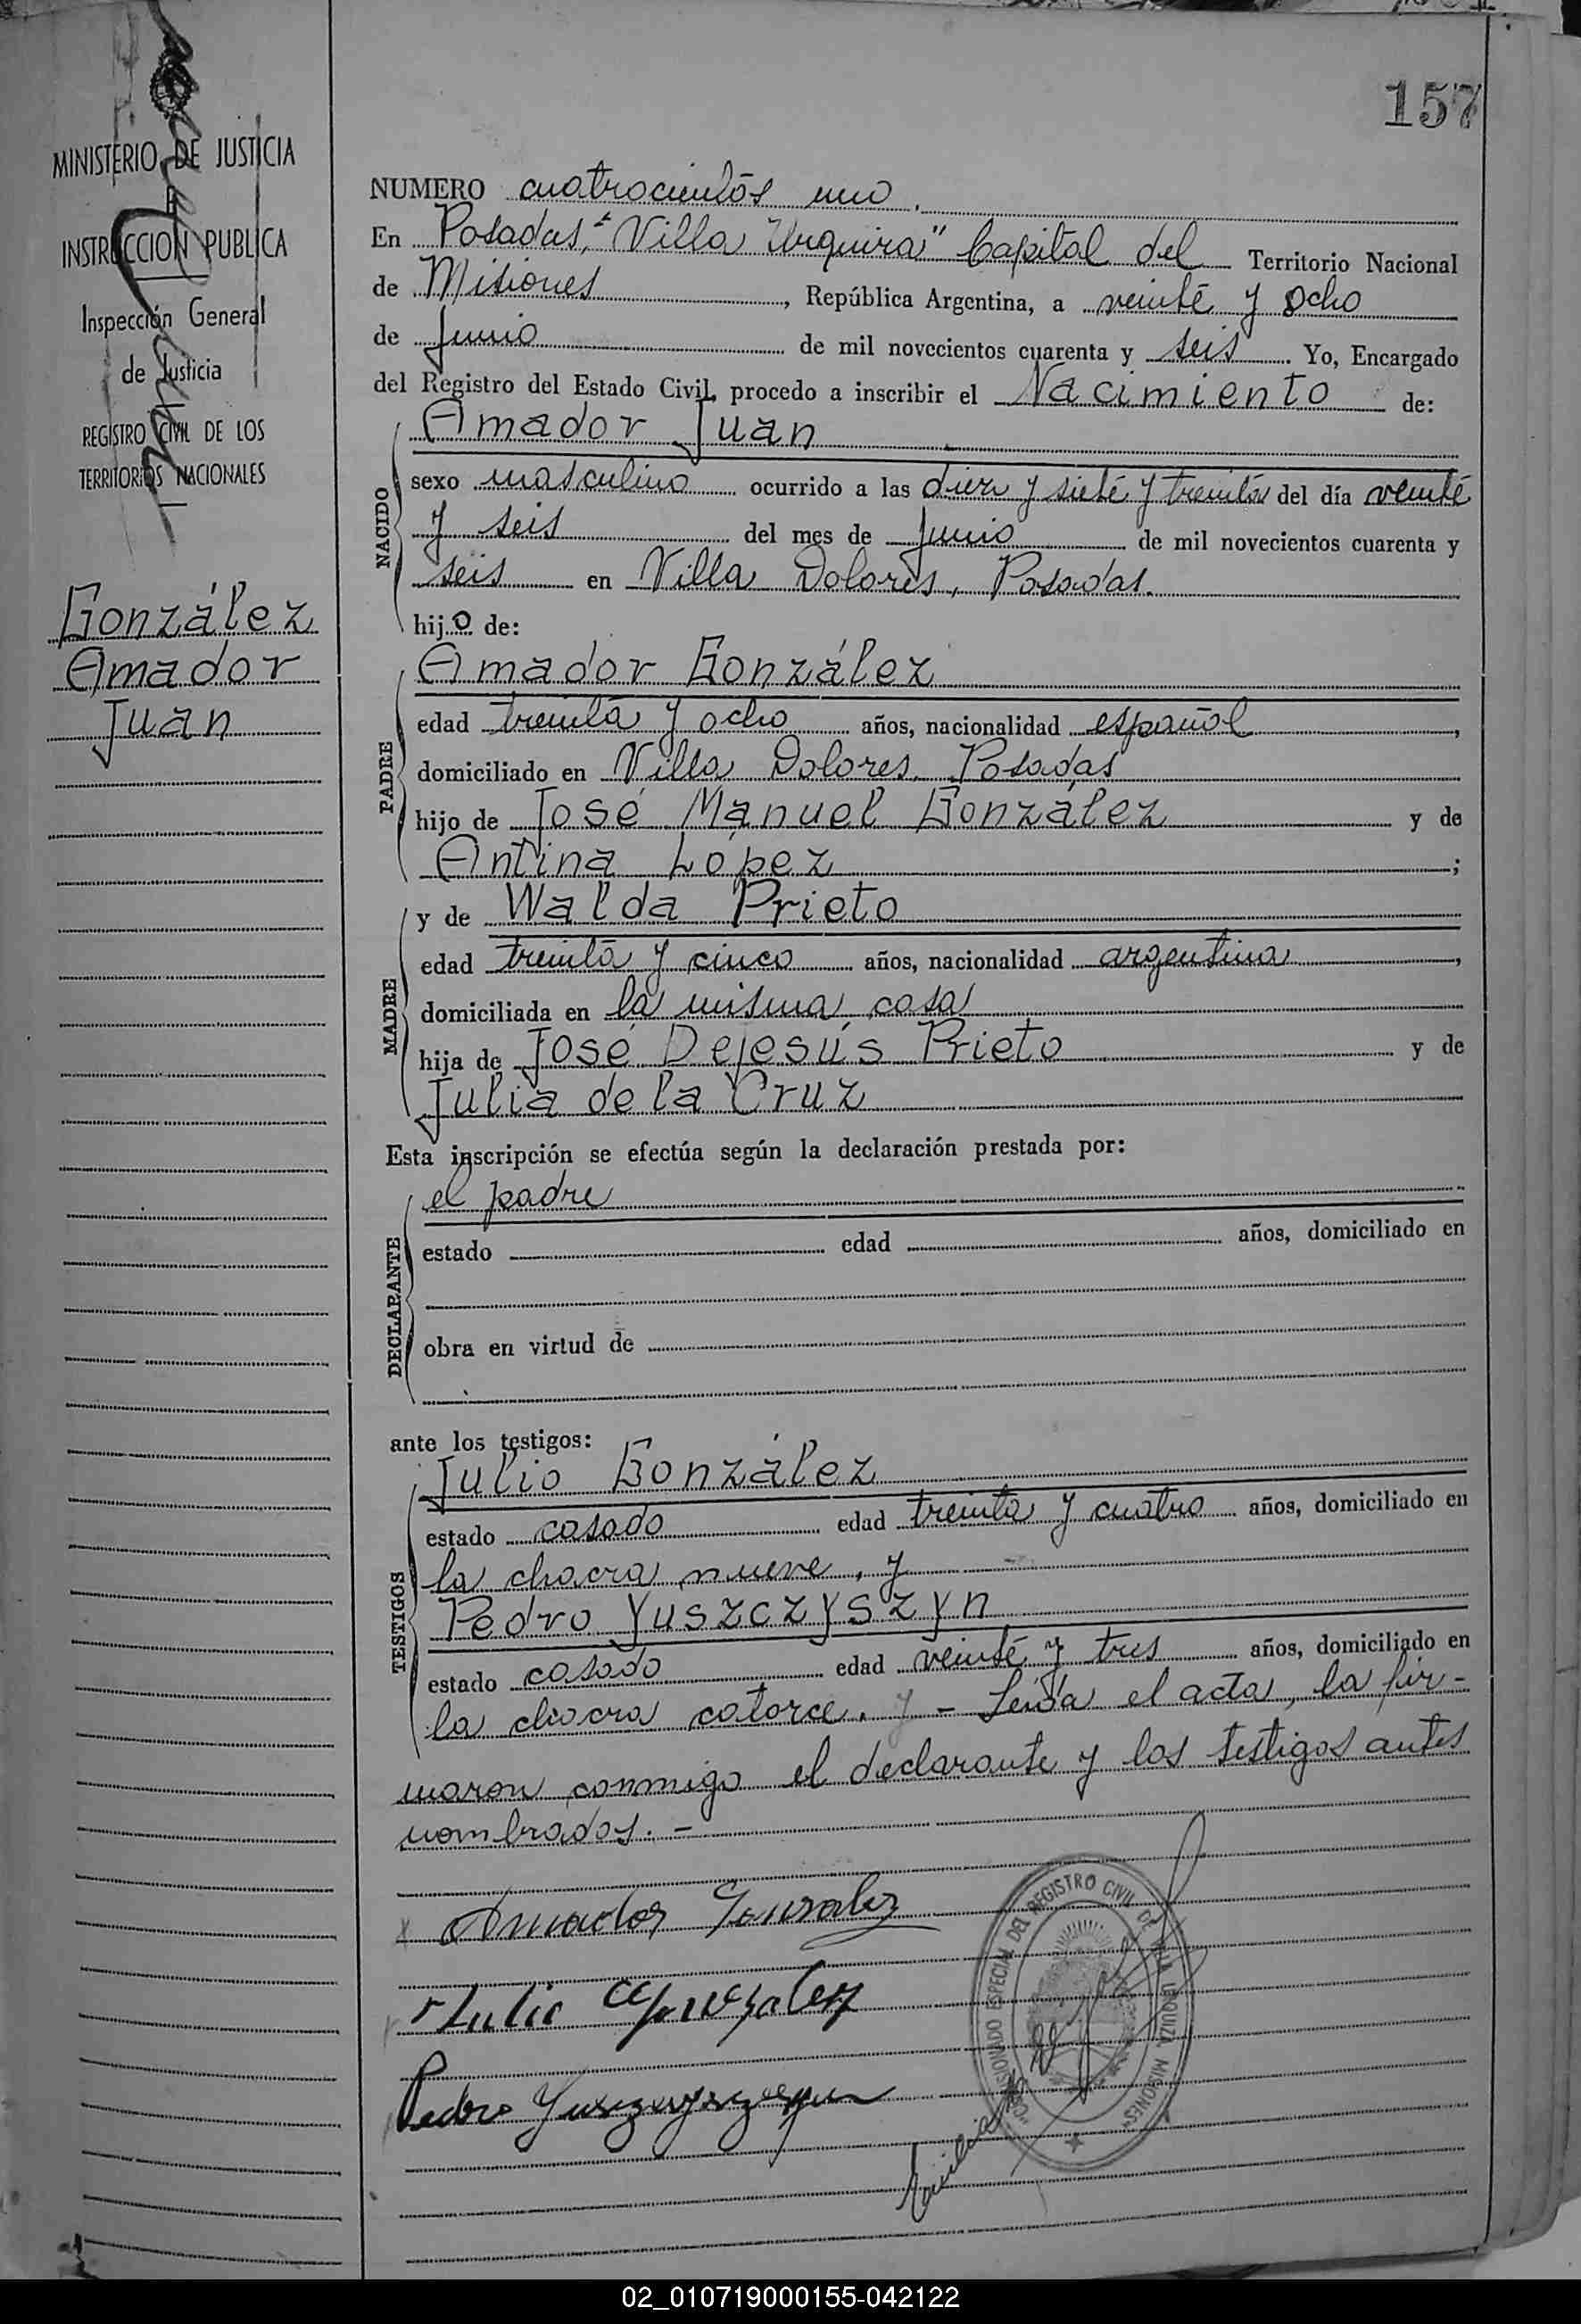 157
MINISTERIO DE JUSTICIA
E
INSTRUCCION PUBLICA
Inspección General
de Justicia
REGISTRO CIVIL DE LOS
TERRITORIOS NACIONALES
González
Amador
Juan
NUMERO cuatrocientos uno.
En Posadas, "Villa Urquiza" Capital del Territorio Nacional
de Misiones, República Argentina, a veinte y ocho
de Junio de mil novecientos cuarenta y seis. Yo, Encargado
del Registro del Estado Civil, procedo a inscribir el Nacimiento de:
Amador Juan
NACIDO
sexo masculino ocurrido a las diez y siete y treinta del día veinte
y seis del mes de Junio de mil novecientos cuarenta y
seis en Villa Dolores, Posadas.
hijo de:
PADRE
Amador González
edad treinta y ocho años, nacionalidad español,
domiciliado en Villa Dolores. Posadas
hijo de José Manuel González y de
Antina López;
MADRE
y de Walda Prieto
edad treinta y cinco años, nacionalidad argentina,
domiciliada en la misma casa
hija de José Dejesús Prieto y de
Julia de la Cruz
Esta inscripción se efectúa según la declaración prestada por:
DECLARANTE
el padre
estado edad años, domiciliado en
obra en virtud de
ante los testigos:
TESTIGOS
Julio González
estado casado edad treinta y cuatro años, domiciliado en
la chacra nueve, y
Pedro Yuszczyszyn
estado casado edad veinte y tres años, domiciliado en
la chacra catorce. y - Leída el acta, la fir-
maron conmigo el declarante y los testigos antes
nombrados. -
Amador Gonzalez
Julio Gonzalez
Pedro
COMISIONADO ESPECIAL DEL REGISTRO CIVIL DE VILLA URQUIZA MISIONES
02_010719000155-042122